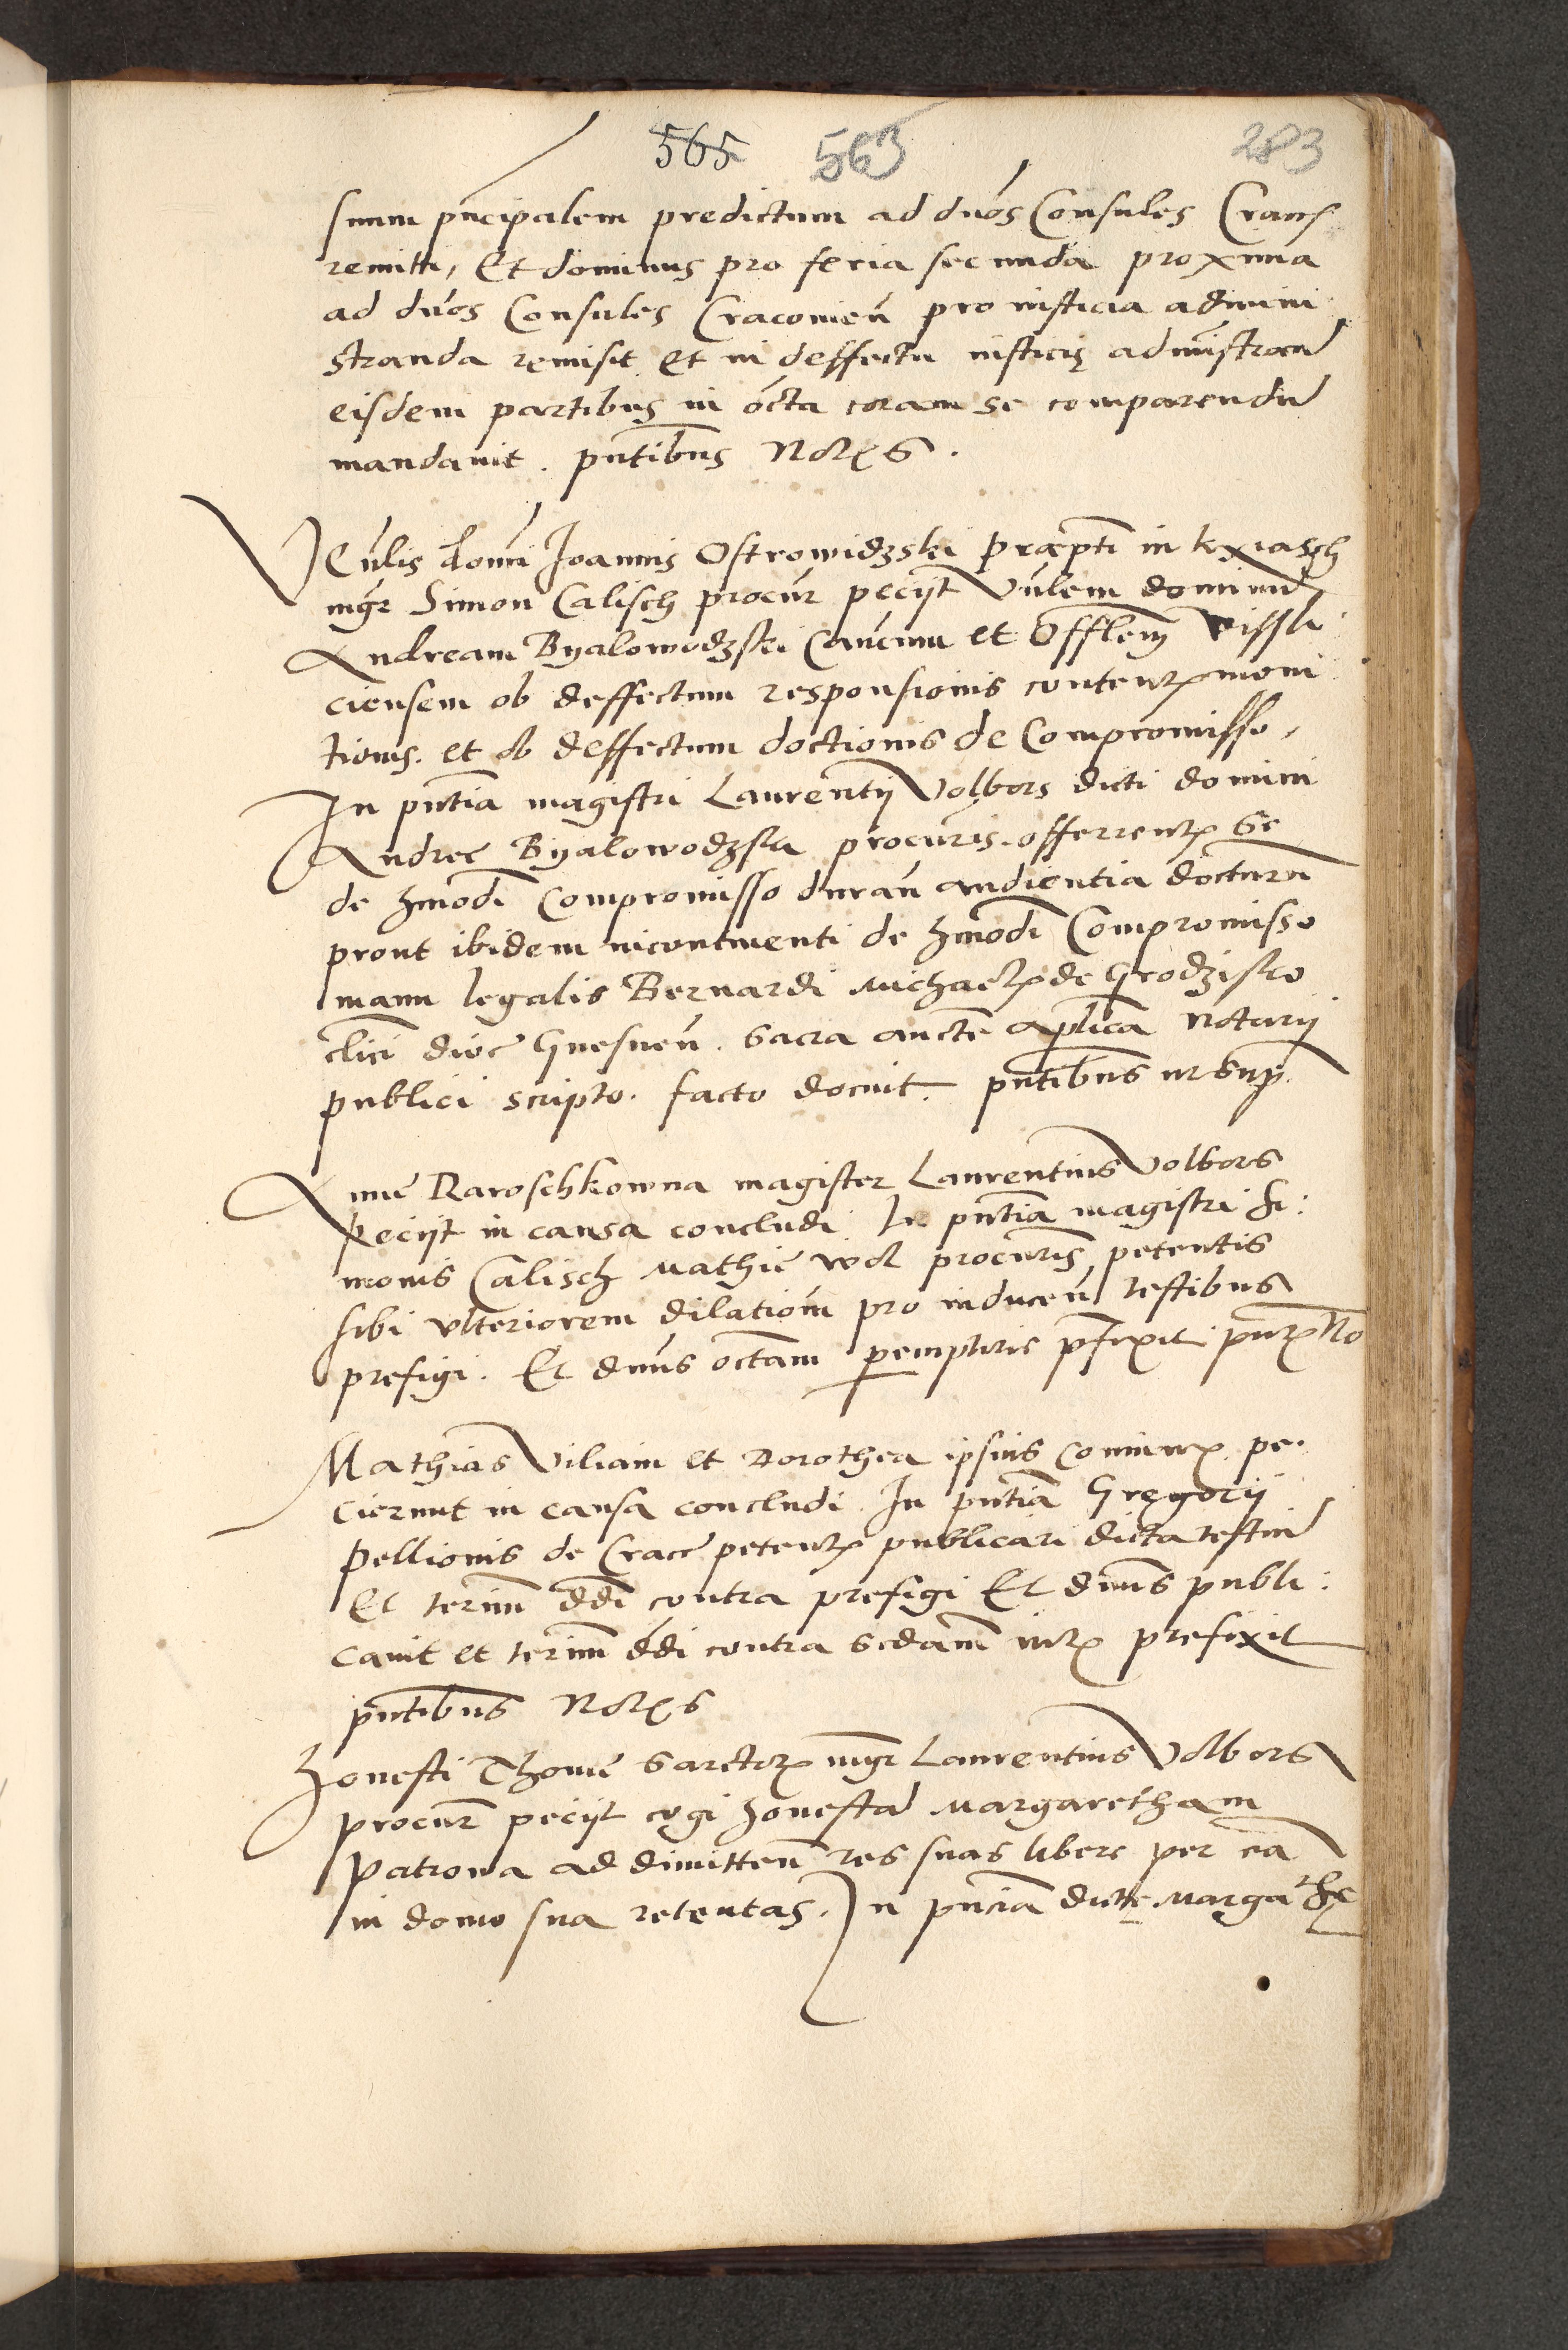 565 563 283
suum pncipalem predictum ad dnos Consules Crac
remitti, Et dominus pro feria secunda proxima
ad dnos Consules Cracovien pro iusticia admini
stranda remisit Et in deffectu iusticie administran
eisdem partibus in octa coram se comparendu
mandavit. pntibus Notis.
Venlis domi Joannis Ostrowidzski prepti in
mgr Simon Calisch procur peciit Vnlem dominu
Andream Byalowodzski Cancnm et Offlem Vissli
ciensem ob deffectum responsionis content moni
tionis. et ob deffectum doctionis de Compromisso,
In pntia magistri Laurentij Volbors dicti domini
Andree Byalowodzski procuris. offerrent se
de hmodi Compromisso duran audientia docturu
prout ibidem incontinenti de hmodi Compromisso
manu legalis Bernardi Michael de Grodzisko
clici dioc Gnesnen. sacra aucte aplica notarij
publici scripto. facto docuit. pntibus ut sup.
Anne Raroschkowna magister Laurentius Volbors
Peciit in causa concludi In pntia magistri Si:
monis Calisch Mathie procuris petentis
sibi vlteriorem dilationem pro inducen testibus
prefigi. Et dnus octam peremptorie pfixit pnt No
Mathias Viliam et Dorothea ipsius coniunx pe.
cierunt in causa concludi. In pntia Gregorij
Pellionis de Crac petent publicari dicta testiu
Et terim ddi contra prefigi Et dnus publi:
cavit et terim ddi contra scdam prefixit
pntibus Notis
Honesti Thome Sartor mgr Laurentius Volbors
procur peciit cogi honesta Margaretham
Patrona ad dimitten res suas libere per ea
in domo sua retentas. In pncia dicte Margarethe